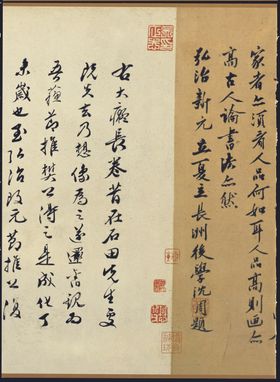 家者亦須看人品何如耳人品高則画亦
高古人論書法亦然
弘治新元立夏立長洲後學沈周題
右大癡長卷昔在石田先生處
既失去乃想像為之遂還舊觀為
吾蘇節推樊公得之是成化丁
未歲也至弘治改元節推公復